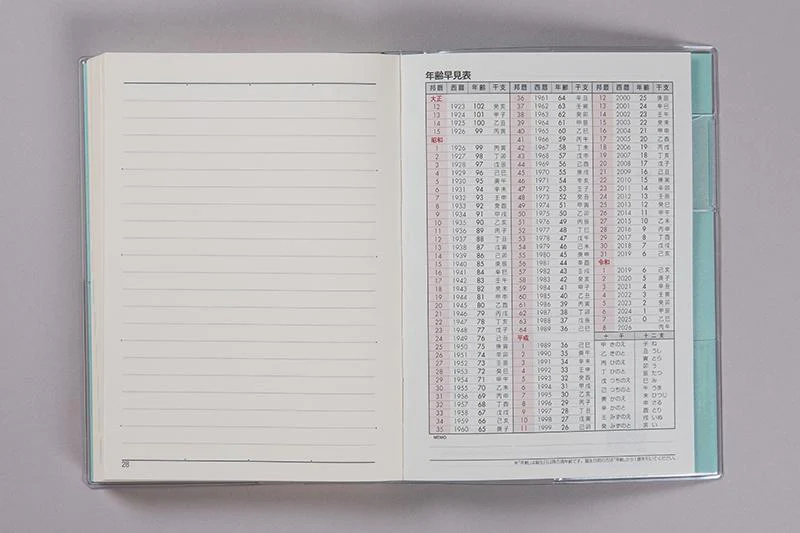 年齢早見表
邦暦 西暦 年齢 干支
大正
12 1923 102 癸亥
13 1924 101 甲子
14 1925 100 乙丑
15 1926 99 丙寅
昭和
1 1926 99 丙寅
2 1927 98 丁卯
3 1928 97 戊辰
4 1929 96 己巳
5 1930 95 庚午
6 1931 94 辛未
7 1932 93 壬申
8 1933 92 癸酉
9 1934 91 甲戌
10 1935 90 乙亥
11 1936 89 丙子
12 1937 88 丁丑
13 1938 87 戊寅
14 1939 86 己卯
15 1940 85 庚辰
16 1941 84 辛巳
17 1942 83 壬午
18 1943 82 癸未
19 1944 81 甲申
20 1945 80 乙酉
21 1946 79 丙戌
22 1947 78 丁亥
23 1948 77 戊子
24 1949 76 己丑
25 1950 75 庚寅
26 1951 74 辛卯
27 1952 73 壬辰
28 1953 72 癸巳
29 1954 71 甲午
30 1955 70 乙未
31 1956 69 丙申
32 1957 68 丁酉
33 1958 67 戊戌
34 1959 66 己亥
35 1960 65 庚子
邦暦 西暦 年齢 干支
36 1961 64 辛丑
37 1962 63 壬寅
38 1963 62 癸卯
39 1964 61 甲辰
40 1965 60 乙巳
41 1966 59 丙午
42 1967 58 丁未
43 1968 57 戊申
44 1969 56 己酉
45 1970 55 庚戌
46 1971 54 辛亥
47 1972 53 壬子
48 1973 52 癸丑
49 1974 51 甲寅
50 1975 50 乙卯
51 1976 49 丙辰
52 1977 48 丁巳
53 1978 47 戊午
54 1979 46 己未
55 1980 45 庚申
56 1981 44 辛酉
57 1982 43 壬戌
58 1983 42 癸亥
59 1984 41 甲子
60 1985 40 乙丑
61 1986 39 丙寅
62 1987 38 丁卯
63 1988 37 戊辰
64 1989 36 己巳
平成
1 1989 36 己巳
2 1990 35 庚午
3 1991 34 辛未
4 1992 33 壬申
5 1993 32 癸酉
6 1994 31 甲戌
7 1995 30 乙亥
8 1996 29 丙子
9 1997 28 丁丑
10 1998 27 戊寅
11 1999 26 己卯
邦暦 西暦 年齢 干支
12 2000 25 庚辰
13 2001 24 辛巳
14 2002 23 壬午
15 2003 22 癸未
16 2004 21 甲申
17 2005 20 乙酉
18 2006 19 丙戌
19 2007 18 丁亥
20 2008 17 戊子
21 2009 16 己丑
22 2010 15 庚寅
23 2011 14 辛卯
24 2012 13 壬辰
25 2013 12 癸巳
26 2014 11 甲午
27 2015 10 乙未
28 2016 9 丙申
29 2017 8 丁酉
30 2018 7 戊戌
31 2019 6 己亥
令和
1 2019 6 己亥
2 2020 5 庚子
3 2021 4 辛丑
4 2022 3 壬寅
5 2023 2 癸卯
6 2024 1 甲辰
7 2025 0 乙巳
8 2026 丙午
十干 十二支
甲 きのえ 子 ね
乙 きのと 丑 うし
丙 ひのえ 寅 とら
丁 ひのと 卯 う
戊 つちのえ 辰 たつ
己 つちのと 巳 み
庚 かのえ 午 うま
辛 かのと 未 ひつじ
壬 みずのえ 申 さる
癸 みずのと 酉 とり
戌 いぬ
亥 い
MEMO
※「年齢」は誕生日以降の満年齢です。誕生日前の方は「年齢」から1歳を引いてください。
28